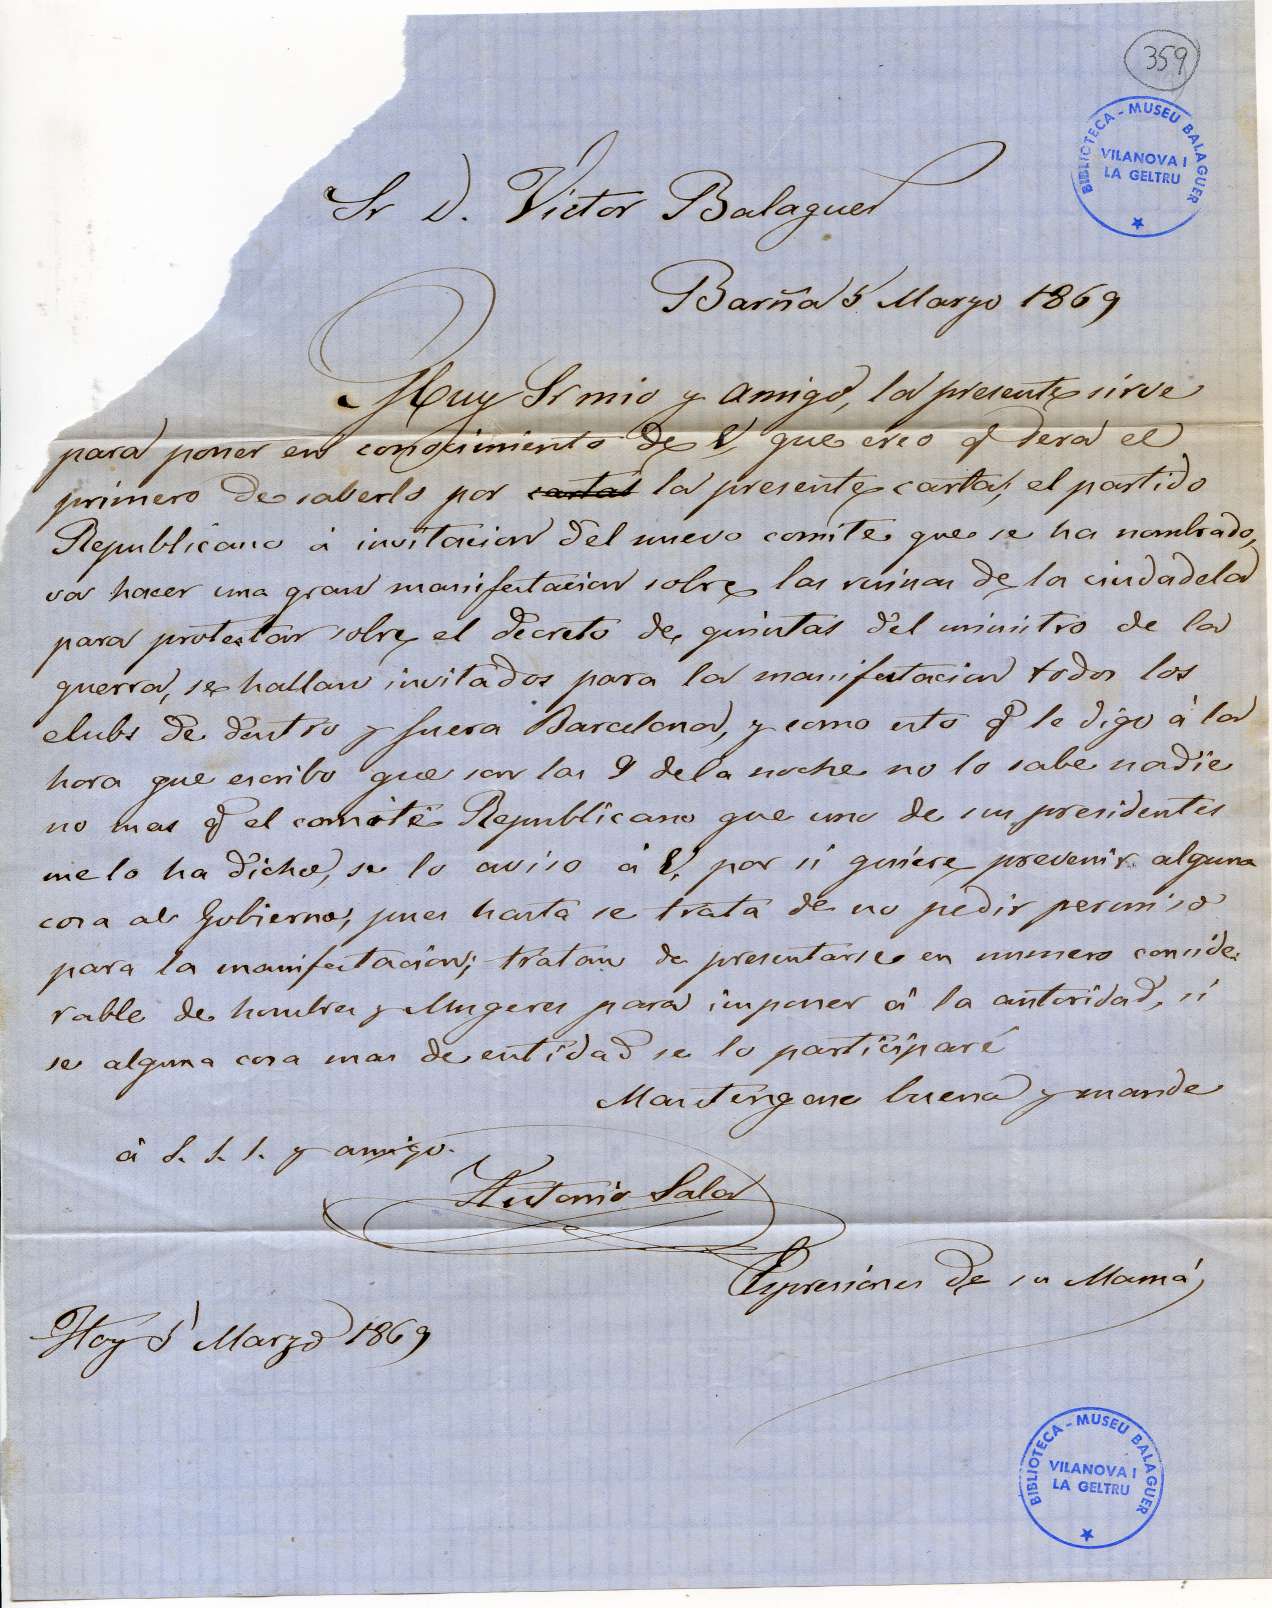 359
BIBLIOTECA - MUSEU BALAGUER
VILANOVA I
LA GELTRU
Sr D. Victor Balaguer
Barña 5 Marzo 1869
Muy Sr mio y amigo, la presente sirve
para poner en conocimiento de V, que creo q̃ será el
primero de saberlo por cartas la presente carta, el partido
Republicano á invitacion del nuevo comite que se ha nombrado,
va hacer una gran manifestacion sobre las ruinas de la ciudadela
para protestar sobre el decreto de quintas del ministro de la
guerra, se hallan invitados para la manifestacion todos los
clubs de dentro y fuera Barcelona, y como esto q̃ le digo á la
hora que escribo que son las 9 de la noche no lo sabe nadie
no mas q̃ el comité Republicano que uno de sus presidentes
me lo ha dicho, se lo aviso á V, por si quiere prevenir alguna
cosa al Gobierno, pues hasta se trata de no pedir permiso
para la manifestacion; tratan de presentarse en numero conside-
rable de hombres y Mugeres para imponer á la autoridad, si
se alguna cosa mas de entidad se lo participaré
Mantengase buena y mande
á S. S. S. y amigo.
Antonio Sala
Espresiones de su Mamá
Hoy 5 Marzo 1869
BIBLIOTECA - MUSEU BALAGUER
VILANOVA I
LA GELTRU